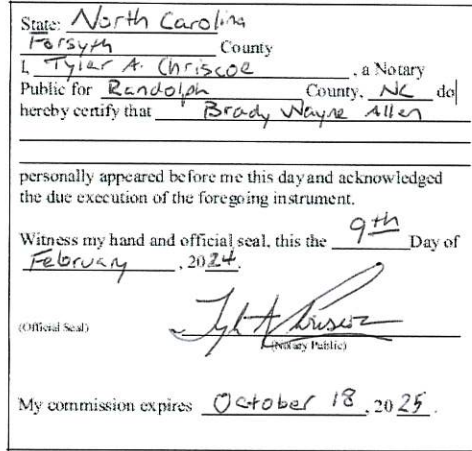 State: North Carolina
Forsyth County
I, Tyler A. Chriscoe, a Notary
Public for Randolph County, NC do
hereby certify that Brady Wayne Allen
personally appeared before me this day and acknowledged
the due execution of the foregoing instrument.
Witness my hand and official seal, this the 9th Day of
February, 2024.
(Official Seal)
Tyler A Chriscoe
(Notary Public)
My commission expires October 18, 2025.